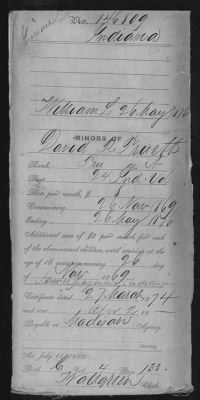 No. 146809
Indiana
William L. 26 May 1876
MINORS OF
David R. Pruett
Rank, Pri
Reg't, 24 Ind. Vo
Rate per month, $ 8
Commencing 26 Nov 1869
Ending 26 May 1876
Additional sum of $2 per month for each
of the above-named children, until arriving at the
age of 16 years, commencing 26 day
of Nov 1869
Certificate dated 27 March 1874
and sent
Payable at Madison Agency
Act July
Book C Vol. 4 Page 133
Clerk.